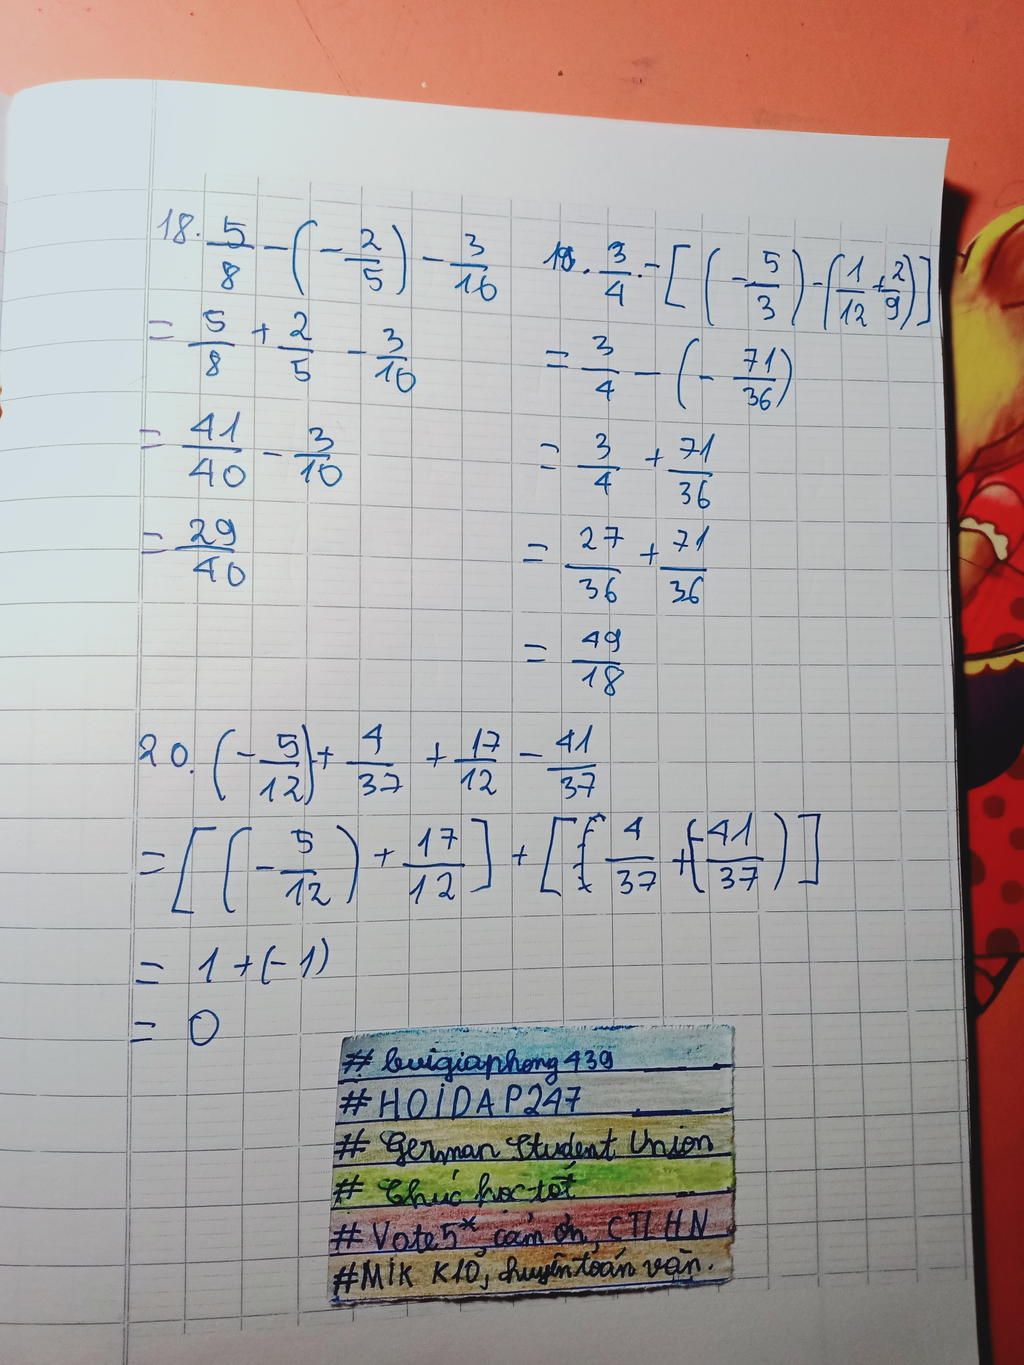 18. 5/8 - (-2/5) - 3/10
= 5/8 + 2/5 - 3/10
= 41/40 - 3/10
= 29/40
19. 3/4 - [(-5/3) - (1/12 + 2/9)]
= 3/4 - (-71/36)
= 3/4 + 71/36
= 27/36 + 71/36
= 49/18
20. (-5/12) + 4/37 + 17/12 - 41/37
= [(-5/12) + 17/12] + [4/37 + (-41/37)]
= 1 + (-1)
= 0
# buigiaphong439
# HOIDAP247
# German Student Union
# Chúc học tốt
# Vote 5* cảm ơn, CTLHN
# MIK K10, chuyên toán văn.